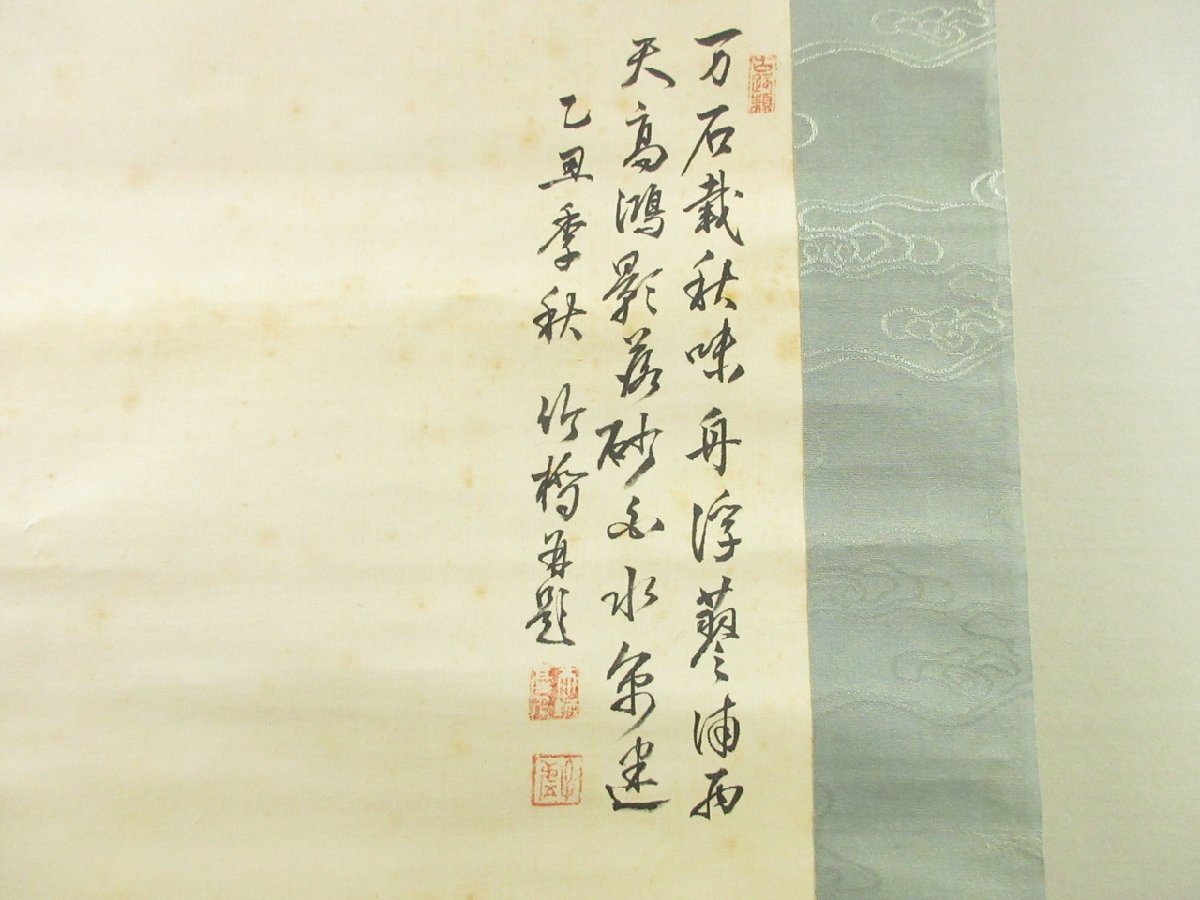 万石載秋味舟浮蓼浦西
天高鴻影落砂白水烟迷
乙丑季秋 竹橋并題